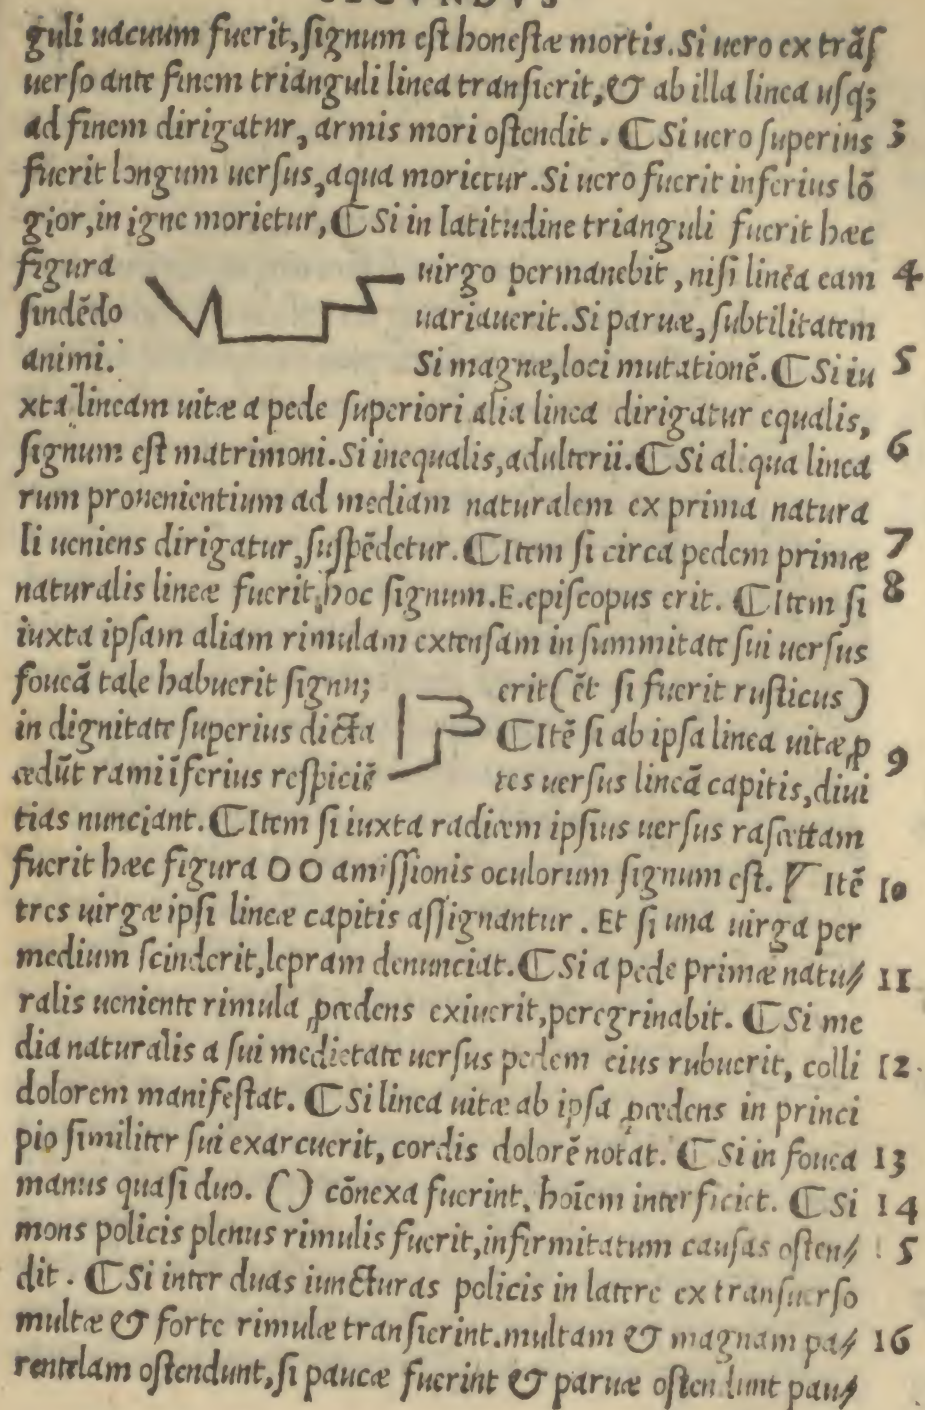 SECVNDVS
guli uacuum fuerit, signum est honestæ mortis. Si uero ex trãs
uerso ante finem trianguli linea transierit, & ab illa linea usq;
ad finem dirigatur, armis mori ostendit. ⸿Si uero superius 3
fuerit longum uersus, aqua morietur. Si uero fuerit inferius lõ
gior, in igne morietur, ⸿Si in latitudine trianguli fuerit hæc
figura uirgo ꝑmanebit, nisi linéa eam 4
findẽdo uariauerit. Si paruæ, subtilitatem
animi. Si magnæ, loci mutationẽ. ⸿Si iu 5
xta lineam uitæ a pede superiori alia linea dirigatur equalis,
signum est matrimoni. Si inequalis, adulterii. ⸿Si aliqua linea 6
rum prouenientium ad mediam naturalem ex prima natura
li ueniens dirigatur, suspẽdetur. ⸿Item si circa pedem primæ 7
naturalis lineæ fuerit hoc signum. E. episcopus erit. ⸿Item si 8
iuxta ipsam aliam rimulam extensam in summitate sui uersus
foueã tale habuerit signũ; erit (ẽt si fuerit rusticus)
in dignitate superius dicta ⸿Itẽ si ab ipsa linea uitæ ꝓ 9
cedũt rami ĩferius respiciẽ tes uersus lineã capitis, diui
tias nunciant. ⸿Item si iuxta radicem ipsius uersus rascettam
fuerit hæc figura OO amissionis oculorum signum est. ⸿Itẽ 10
tres uirgæ ipsi lineæ capitis assignantur. Et si una uirga per
medium scinderit, lepram denunciat. ⸿Si a pede primæ natu⸗ 11
ralis ueniente rimula ꝓcedens exiuerit, peregrinabit. ⸿Si me
dia naturalis a sui medietate uersus pedem eius rubuerit, colli 12
dolorem manifestat. ⸿Si linea uitæ ab ipsa ꝓcedens in princi
pio similiter sui exarcuerit, cordis dolorẽ notat. ⸿Si in fouea 13
manus quasi duo. () cõnexa fuerint, hoĩem interficiet. ⸿Si 14
mons policis plenus rimulis fuerit, infirmitatum causas osten⸗ 5
dit. ⸿Si inter duas iuncturas policis in latere ex transuerso
multæ & forte rimulæ transierint. multam & magnam pa⸗ 16
rentelam ostendunt, si paucæ fuerint & paruæ ostendunt pau⸗